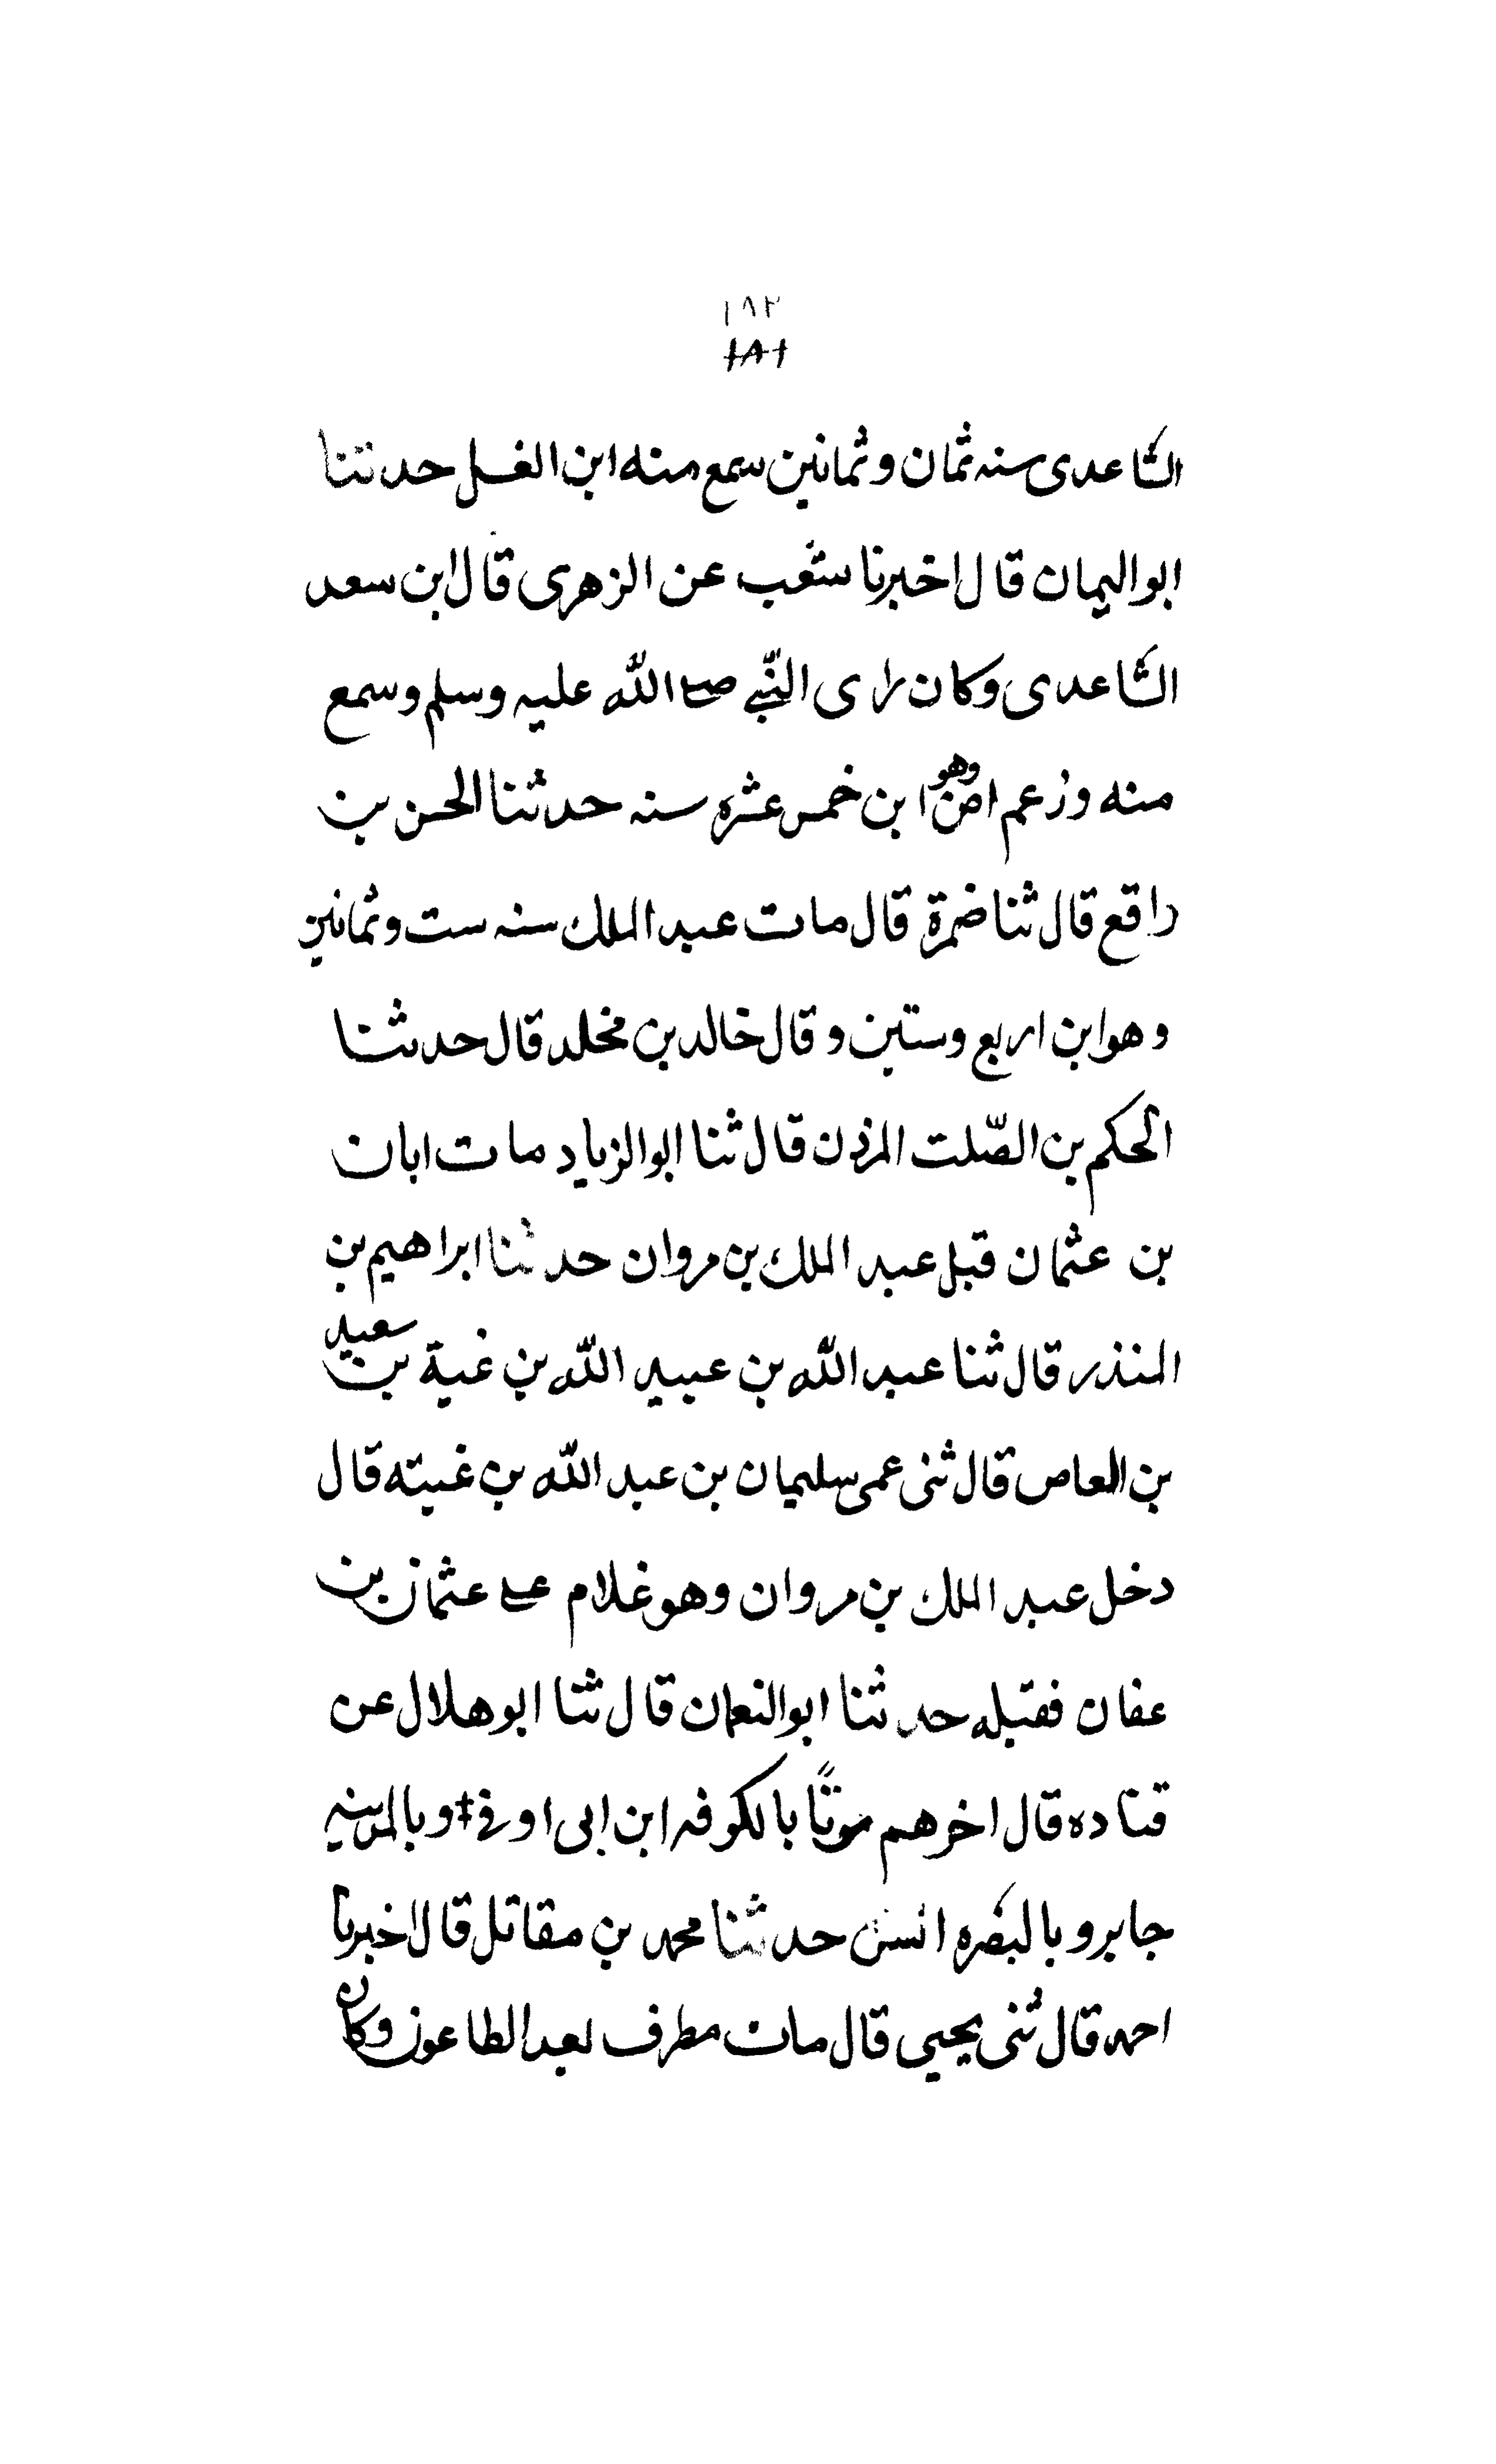 ١٨٢
١٨١
الساعدى سنه ثمان وثمانين سمع منه ابن الغسل حدثنا
ابو اليمان قال اخبرنا شعب عن الزهرى قال ابن سعد
الساعدى وكان راى النبي صلى الله عليه وسلم وسمع
منه وزعم وهو ابن خمس عشره سنه حدثنا الحسن بن
راقع قال ثنا ضمرة قال مات عبد الملك سنه ست وثمانين
وهو ابن اربع وستين وقال خالد بن مخلد قال حدثنا
الحكم بن الصّلت المرذن قال ثنا ابو الزياد مات ابان
بن عثمان قبل عبد الملك بن مروان حدثنا ابراهيم بن
المنذر قال ثنا عبد الله بن عبيد الله بن غبة بن سعيد
بن العاص قال ثنى عمى سليمان بن عبد الله بن غبته قال
دخل عبد الملك بن مروان وهو غلام على عثمان بن
عفان فقبله حدثنا ابو النعمان قال ثنا ابو هلال عن
قتاده قال اخرهم موتًا بالكوفه ابن ابى اوفى وبالمدينه
جابر وبالبصره انس حدثنا محمد بن مقاتل قال اخبرنا
احمد قال ثنى يحيى قال مات مطرف بعد الطاعون وكان